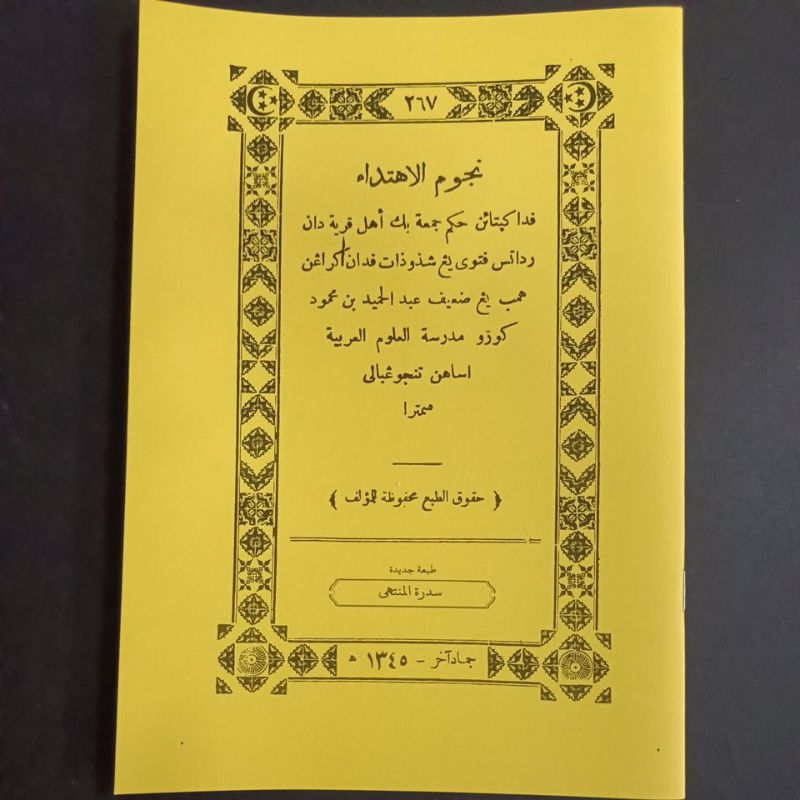 ٢٦٧
نجوم الاهتداء
فدا کپتائن حكم جمعة بك أهل قرية دان
رداتس فتوى يڠ شذوذات فدان كراڠن
همب يڠ ضعيف عبد الحميد بن محمود
کوزو مدرسة العلوم العربية
اساهن تنجوڠبالى
سمترا
﴿ حقوق الطبع محفوظة للمؤلف ﴾
طبعة جديدة
سدرة المنتهى
جمادآخر - ١٣٤٥ ه